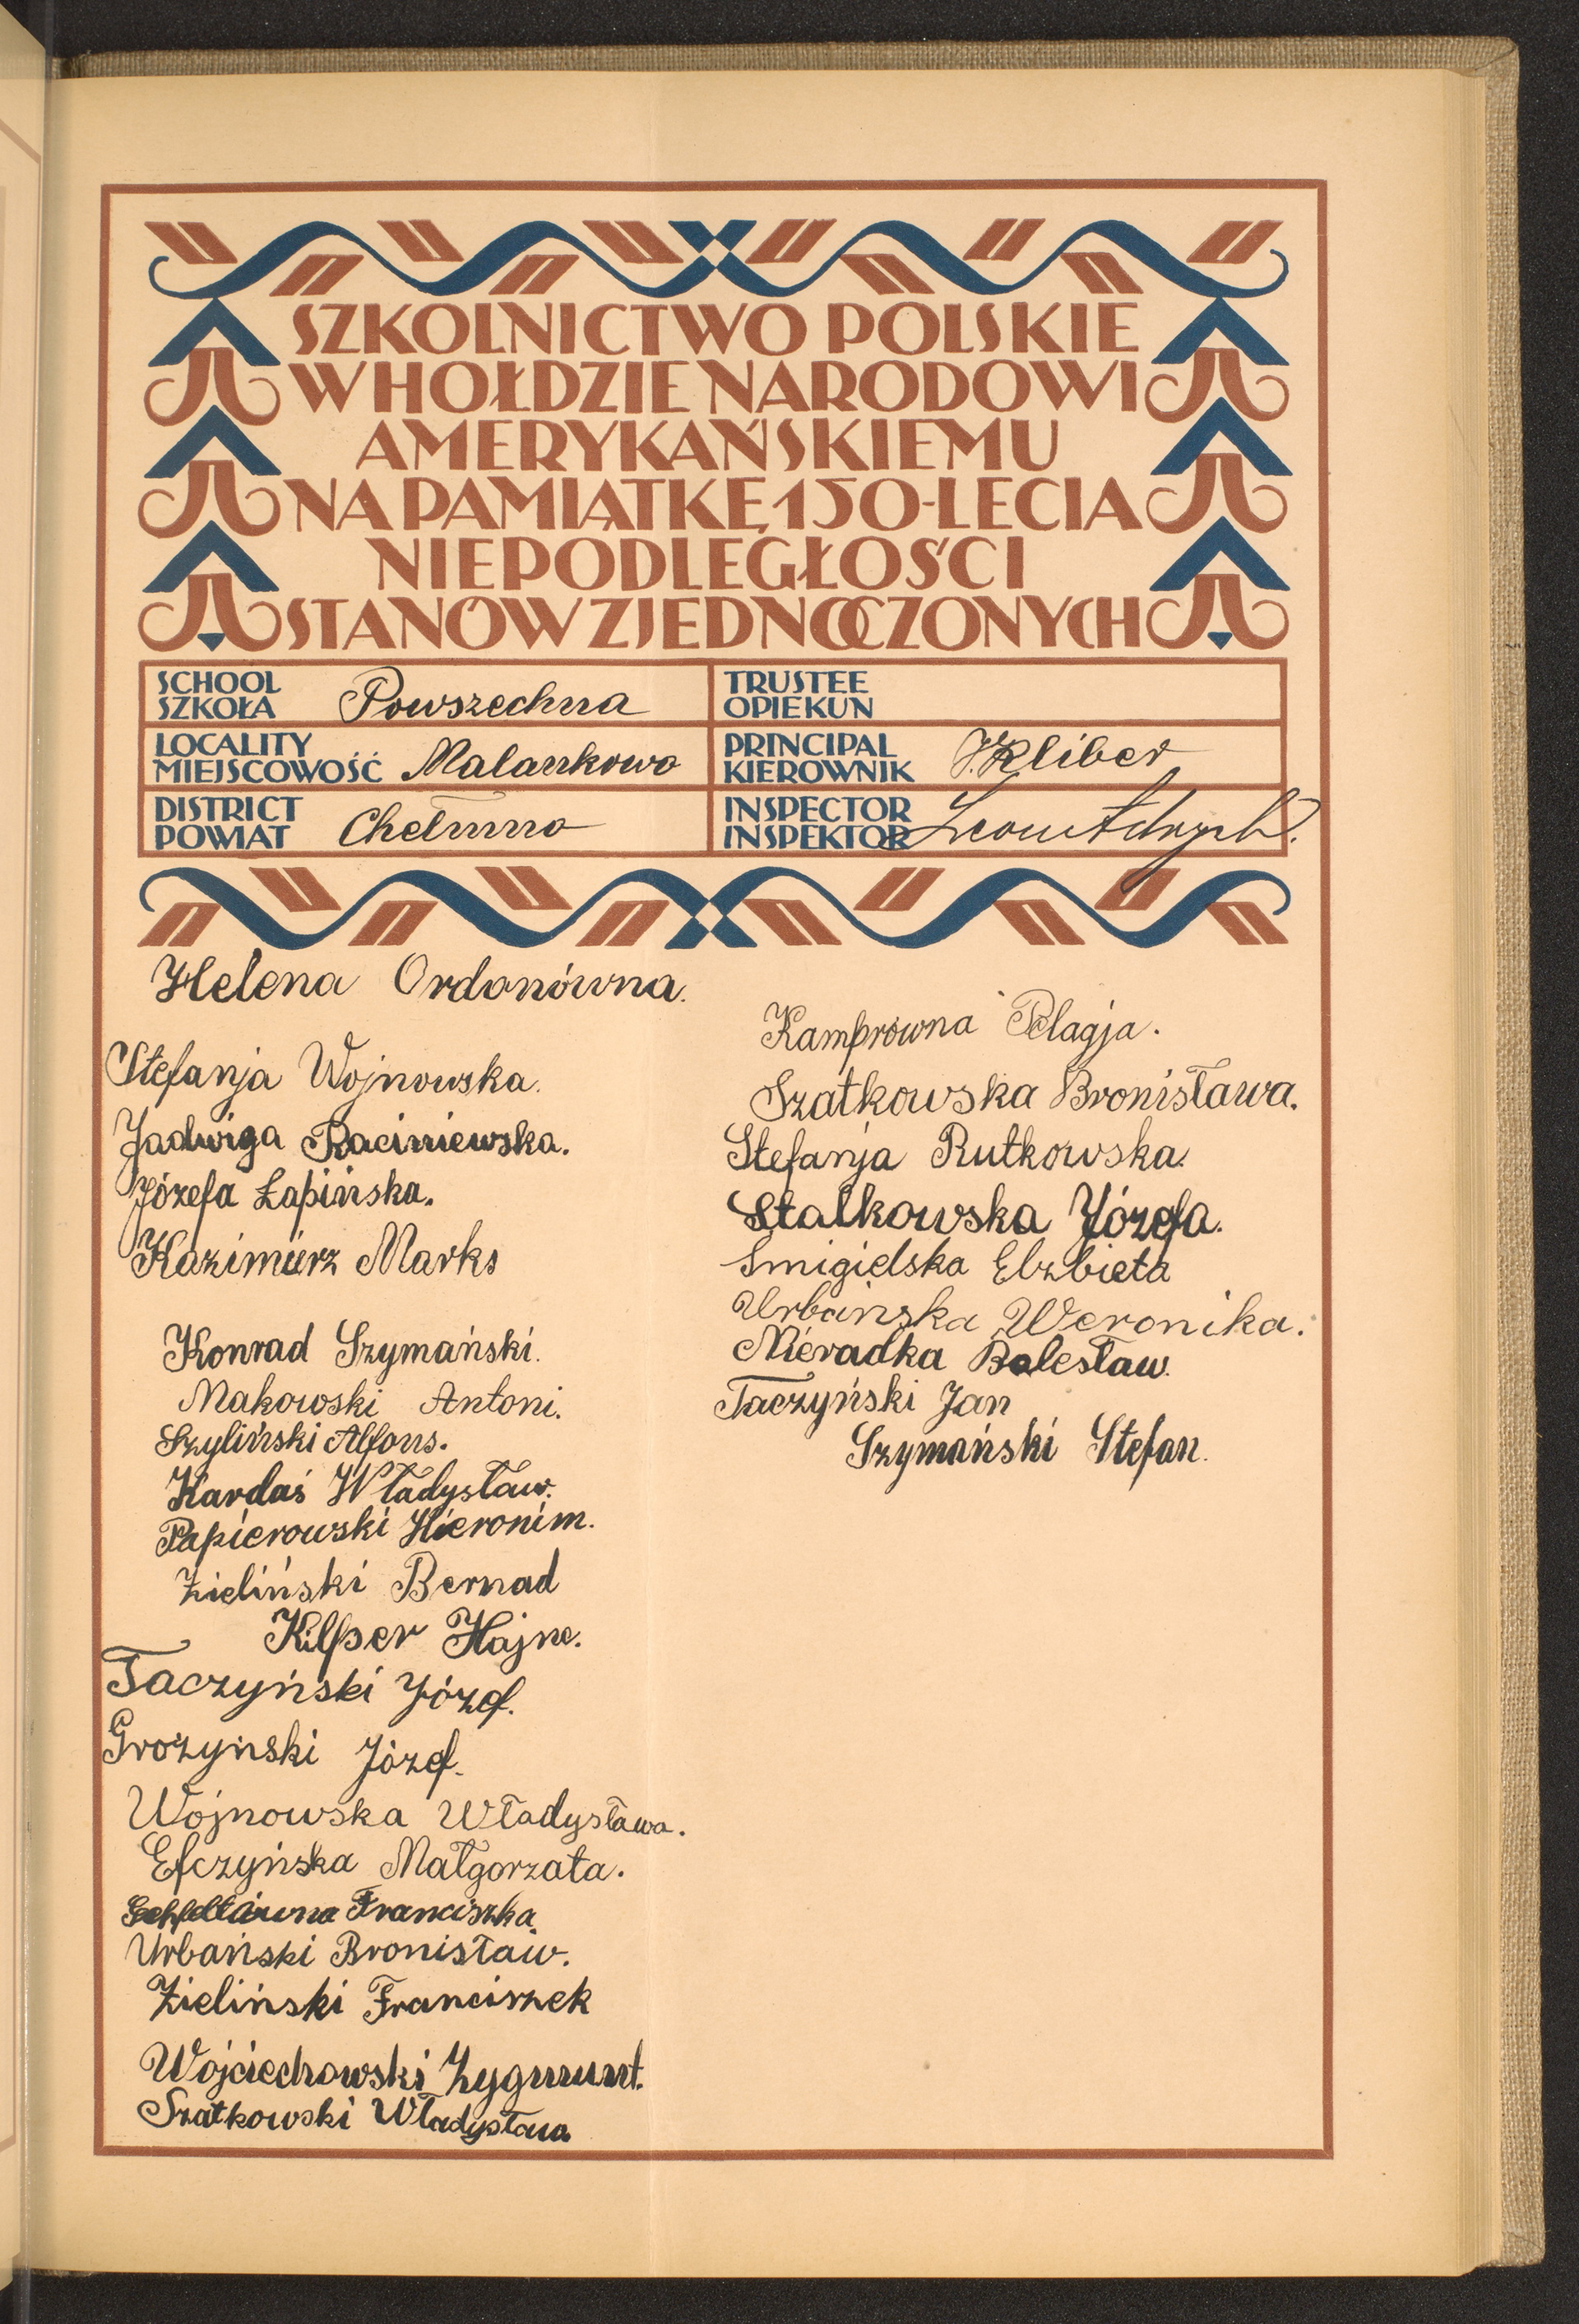 SZKOLNICTWO POLSKIE
W HOŁDZIE NARODOWI
AMERYKAŃSKIEMU
NA PAMIĄTKĘ 150-LECIA
NIEPODLEGŁOŚCI
STANÓW ZJEDNOCZONYCH
SCHOOL
SZKOŁA Powszechna
TRUSTEE
OPIEKUN
LOCALITY
MIEJSCOWOŚĆ Malankowo
PRINCIPAL
KIEROWNIK J. Kliber
DISTRICT
POWIAT Chełmno
INSPECTOR
INSPEKTOR Leon
Helena Ordonówna.
Stefanja Wojnowska.
Jadwiga Raciniewska.
Józefa Łapińska.
Kazimierz Marks
Konrad Szymański.
Makowski Antoni.
Szyliński Alfons.
Kardaś Władysław.
Papierowski Hieronim.
Zieliński Bernad
Kilper Hajne.
Taczyński Józef.
Grożyński Józef.
Wojnowska Władysława.
Efczyńska Małgorzata.
Franciszka
Urbański Bronisław.
Zieliński Franciszek
Wojciechowski Zygmunt.
Szatkowski Władysław
Kamprówna Pelagja.
Szatkowska Bronisława.
Stefanja Rutkowska.
Stalkowska Józefa.
Śmigielska Elzbieta
Urbańska Weronika.
Nieradka Bolesław.
Taczyński Jan
Szymański Stefan.